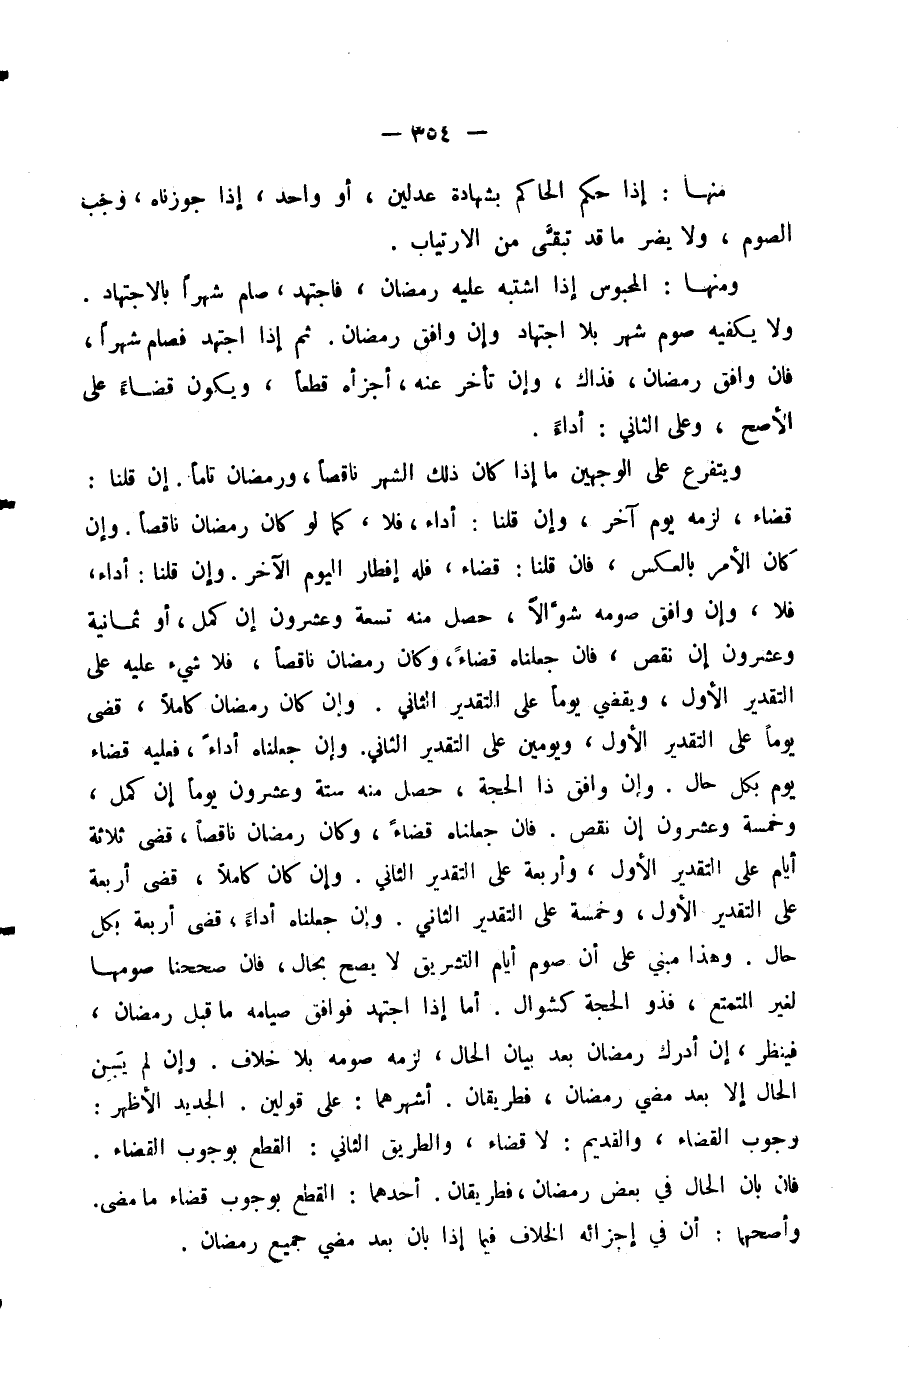 — ٣٥٤ —
منهـا : إذا حكم الحاكم بشهادة عدلين ، أو واحد ، إذا جوزناه ، وجب
الصوم ، ولا يضر ما قد تبقَّى من الارتياب .
ومنهـا : المحبوس إذا اشتبه عليه رمضان ، فاجتهد ، صام شهراً بالاجتهاد .
ولا يكفيه صوم شهر بلا اجتهاد وإن وافق رمضان . ثم إذا اجتهد فصام شهراً ،
فان وافق رمضان ، فذاك ، وإن تأخر عنه ، أجزأه قطعاً ، ويكون قضـاءً على
الأصح ، وعلى الثاني : أداءً .
ويتفرع على الوجهين ما إذا كان ذلك الشهر ناقصاً ، ورمضان تاماً . إن قلنا :
قضاء ، لزمه يوم آخر ، وإن قلنا : أداء ، فلا ، كما لو كان رمضان ناقصاً . وإن
كان الأمر بالعكس ، فان قلنا : قضاء ، فله إفطار اليوم الآخر . وإن قلنا : أداء ،
فلا ، وإن وافق صومه شوَّالاً ، حصل منه تسعة وعشرون إن كمل ، أو ثمـانية
وعشرون إن نقص ، فان جعلناه قضاءً ، وكان رمضان ناقصاً ، فلا شيء عليه على
التقدير الأول ، ويقضي يوماً على التقدير الثاني . وإن كان رمضان كاملاً ، قضى
يوماً على التقدير الأول ، ويومين على التقدير الثاني . وإن جعلناه أداءً ، فعليه قضاء
يوم بكل حال . وإن وافق ذا الحجة ، حصل منه ستة وعشرون يوماً إن كمل ،
وخمسة وعشرون إن نقص . فان جعلناه قضاءً ، وكان رمضان ناقصاً ، قضى ثلاثة
أيام على التقدير الأول ، وأربعة على التقدير الثاني . وإن كان كاملاً ، قضى أربعة
على التقدير الأول ، وخمسة على التقدير الثاني . وإن جعلناه أداءً ، قضى أربعة بكل
حال . وهذا مبني على أن صوم أيام التشريق لا يصح بحال ، فان صححنا صومهـا
لغير المتمتع ، فذو الحجة كشوال . أما إذا اجتهد فوافق صيامه ما قبل رمضان ،
فينظر ، إن أدرك رمضان بعد بيان الحال ، لزمه صومه بلا خلاف . وإن لم يتبين
الحال إلا بعد مضي رمضان ، فطريقان . أشهرهما : على قولين . الجديد الأظهر :
وجوب القضاء ، والقديم : لا قضاء ، والطريق الثاني : القطع بوجوب القضاء .
فان بان الحال في بعض رمضان ، فطريقان . أحدهما : القطع بوجوب قضاء ما مضى .
وأصحهما : أن في إجزائه الخلاف فيما إذا بان بعد مضي جميع رمضان .